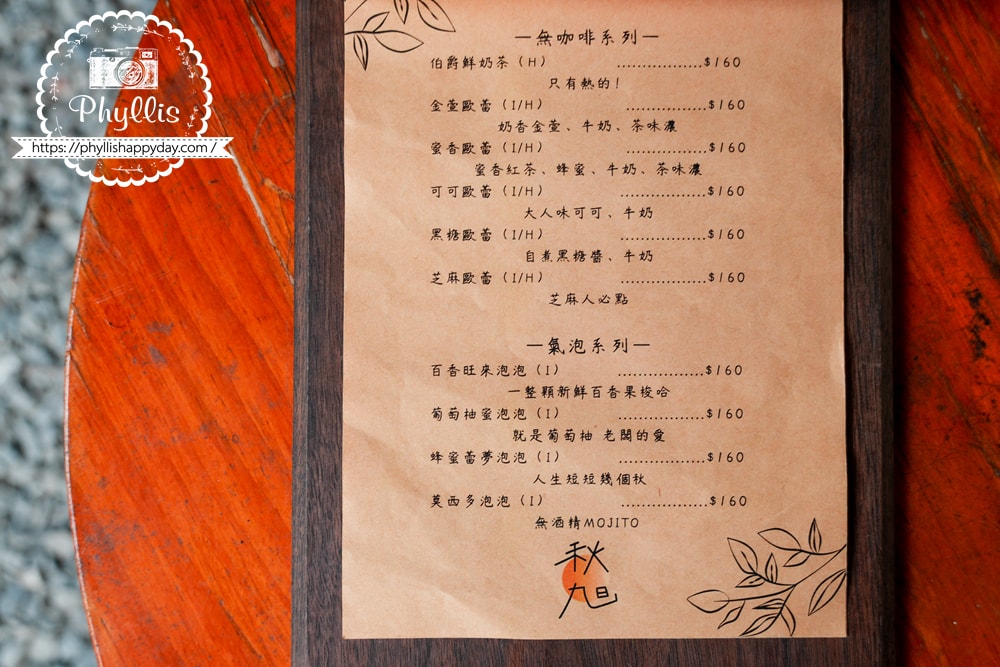 Phyllis
https://phyllishappyday.com/
—無咖啡系列—
伯爵鮮奶茶（H） .................$160
只有熱的！
金萱歐蕾（I/H） ................$160
奶香金萱、牛奶、茶味濃
蜜香歐蕾（I/H） ................$160
蜜香紅茶、蜂蜜、牛奶、茶味濃
可可歐蕾（I/H） .................$160
大人味可可、牛奶
黑糖歐蕾（I/H） .................$160
自煮黑糖醬、牛奶
芝麻歐蕾（I/H） .................$160
芝麻人必點
—氣泡系列—
百香旺來泡泡（I） .................$160
一整顆新鮮百香果梭哈
葡萄柚蜜泡泡（I） .................$160
就是葡萄柚 老闆的愛
蜂蜜蕾夢泡泡（I） .................$160
人生短短幾個秋
莫西多泡泡（I） .................$160
無酒精MOJITO
秋
旭